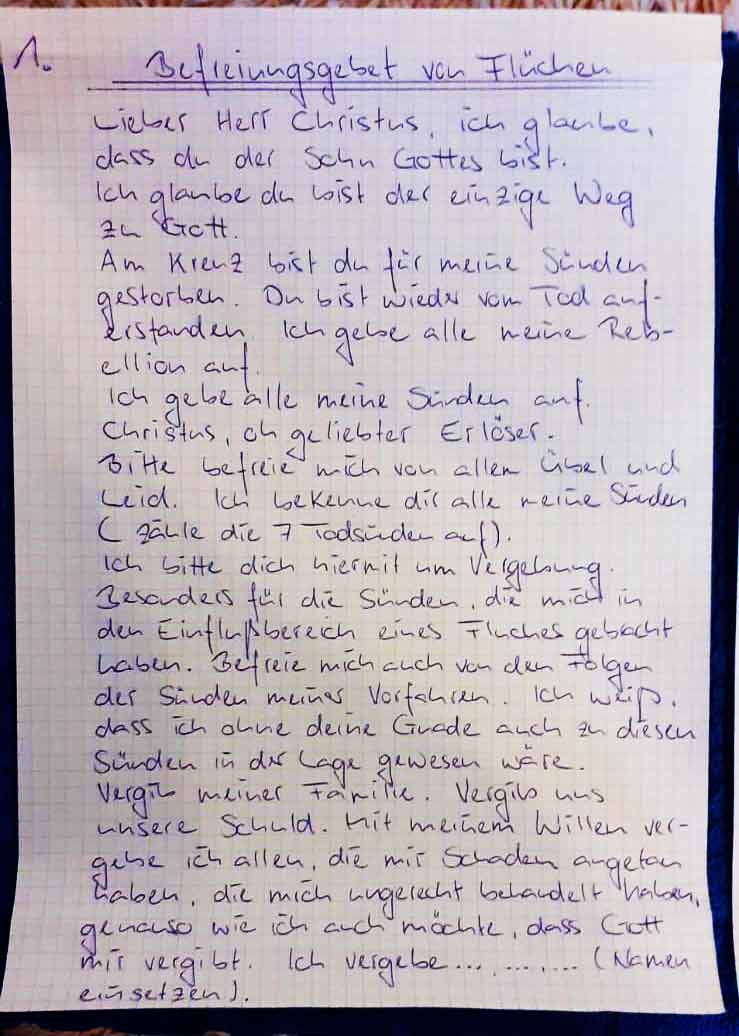 1.
Befreiungsgebet von Flüchen
Lieber Herr Christus, ich glaube,
dass du der Sohn Gottes bist.
Ich glaube du bist der einzige Weg
zu Gott.
Am Kreuz bist du für meine Sünden
gestorben. Du bist wieder vom Tod auf-
erstanden. Ich gebe alle meine Reb-
ellion auf.
Ich gebe alle meine Sünden auf.
Christus, oh geliebter Erlöser.
Bitte befreie mich von allem Übel und
Leid. Ich bekenne dir alle meine Sünden
( zähle die 7 Todsünden auf).
Ich bitte dich hiermit um Vergebung.
Besonders für die Sünden, die mich in
den Einflußbereich eines Fluches gebracht
haben. Befreie mich auch von den Folgen
der Sünden meiner Vorfahren. Ich weiß,
dass ich ohne deine Gnade auch zu diesen
Sünden in der Lage gewesen wäre.
Vergib meiner Familie. Vergib uns
unsere Schuld. Mit meinem Willen ver-
gebe ich allen, die mir Schaden angetan
haben, die mich ungerecht behandelt haben,
genauso wie ich auch möchte, dass Gott
mir vergibt. Ich vergebe... , ... , ... (Namen
einsetzen).